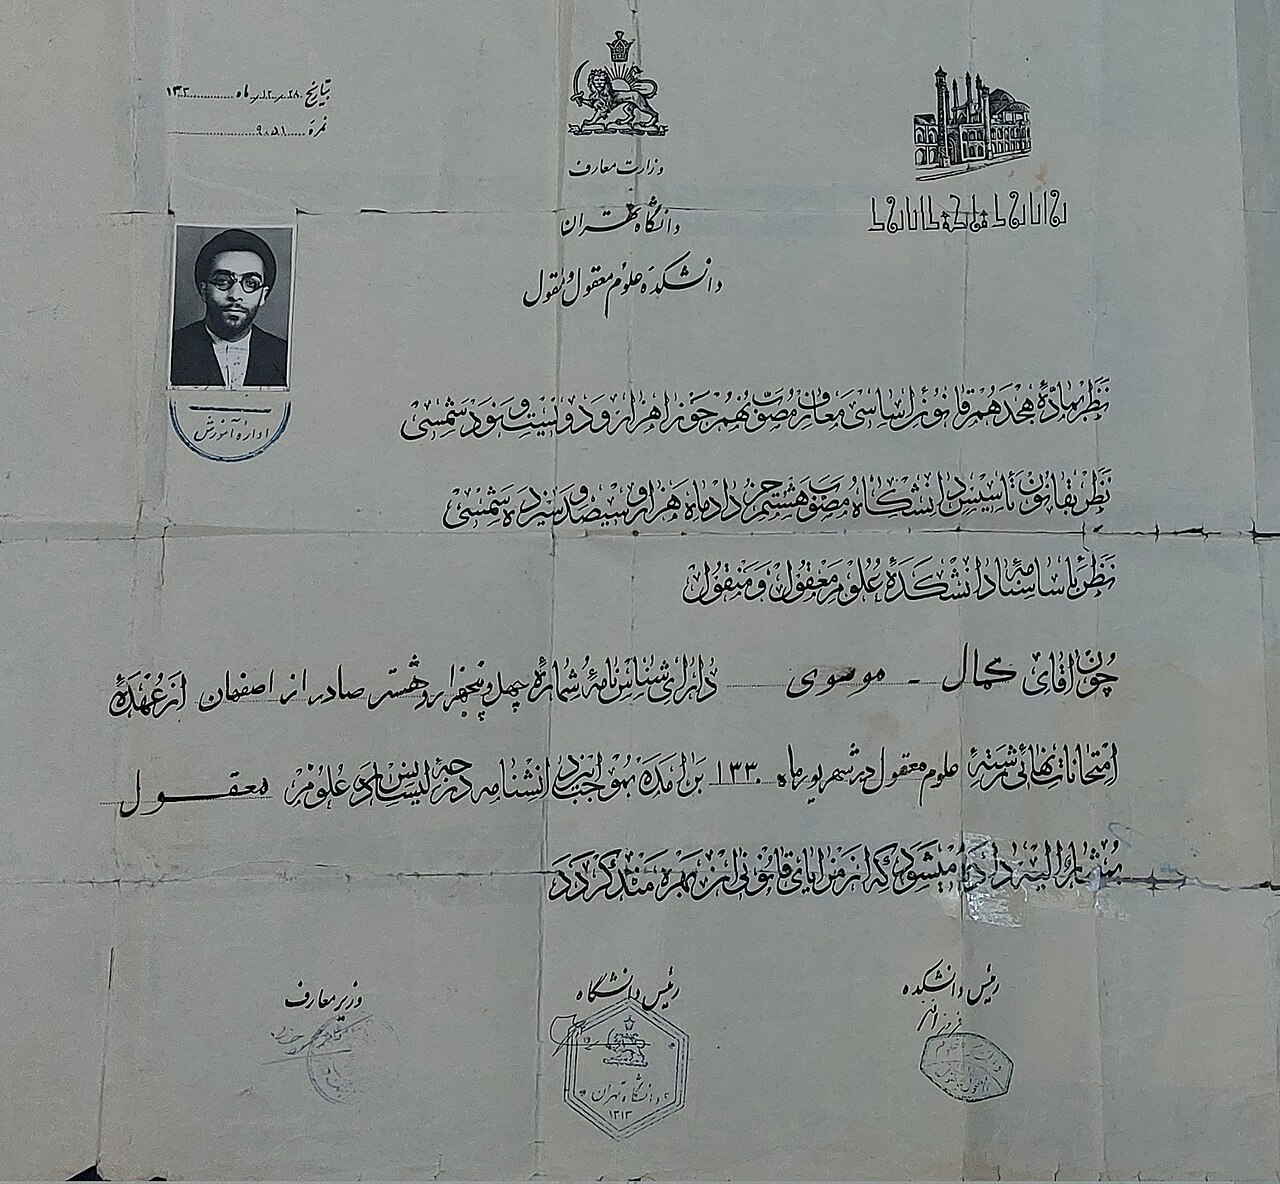 بتاریخ ۲۸ ماه ۱۲ ۱۳۲
نمره ۹۰۵۱
وزارت معارف
دانشگاه تهران
دانشکده علوم معقول و منقول
اداره آموزش
نظر بمادّهٔ هجدهم قانون اساسی معارف مصوّب نهم جوزا هزار و دویست و نود شمسی
نظر بقانون تأسیس دانشگاه مصوّب هشتم خرداد ماه هزار و سیصد و سیزده شمسی
نظر باساسنامه دانشکدهٔ علوم معقول و منقول
چون آقای کمال - موسوی دارای شناسنامهٔ شمارهٔ چهل و پنجهزار و هشت صادر از اصفهان از عهدهٔ
امتحانات نهائی رشتهٔ علوم معقول در شهریور ماه ۱۳۳۰ برآمده بموجب این دانشنامه درجهٔ لیسانس در علوم معقول
مشارالیه داده میشود که از مزایای قانونی آن بهره‌مند گردد
رئیس دانشکده
فروزانفر
رئیس دانشگاه
وزیر معارف
دانشگاه تهران
۱۳۱۳